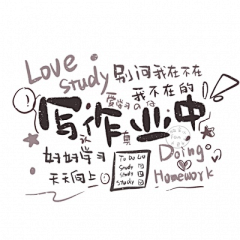 Love
study
别问我在不在
我不在的
爱学习の仔
写作业中
认真
好好学习
天天向上
To Do List
Study
Study
Study
Doing
Homework